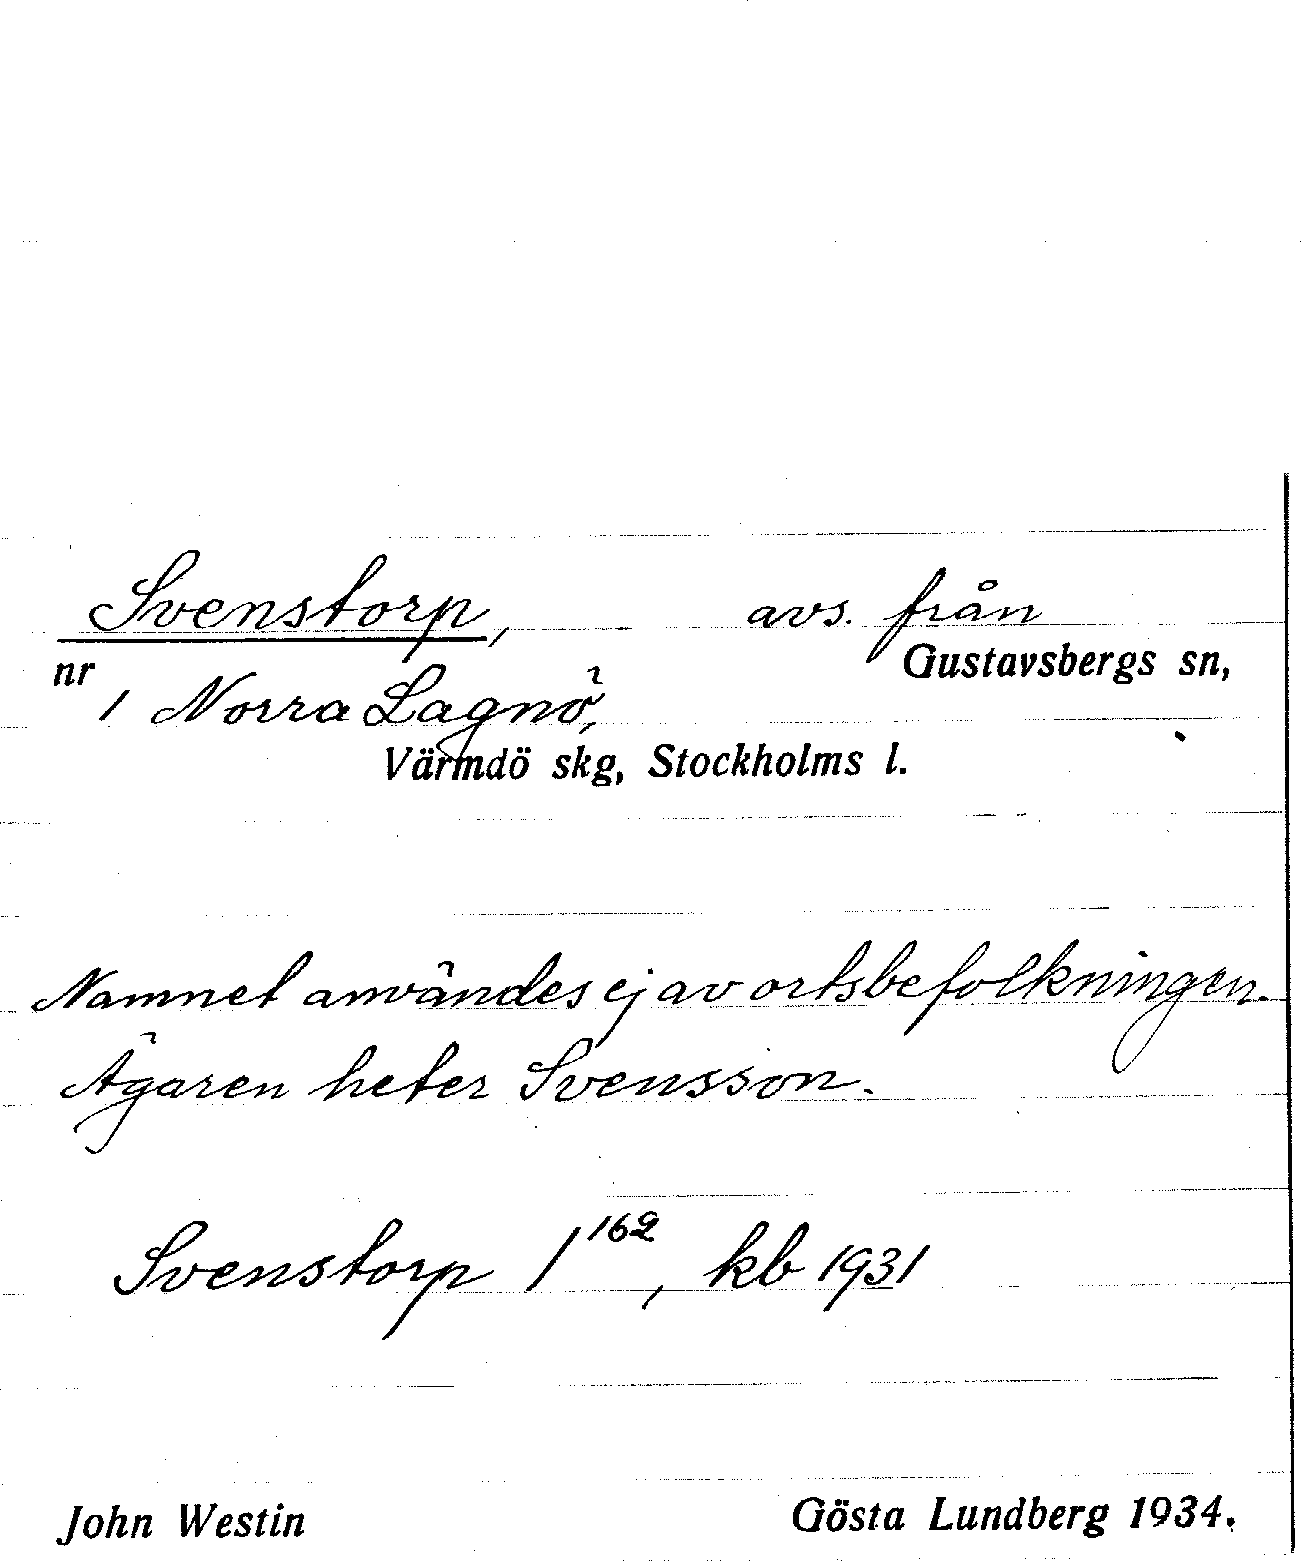 Svenstorp, avs. från
nr Gustavsbergs sn,
1 Norra Lagnö,
Värmdö skg, Stockholms l.
Namnet användes ej av ortsbefolkningen.
Ägaren heter Svensson.
Svenstorp 1¹⁶², kb 1931
John Westin Gösta Lundberg 1934.